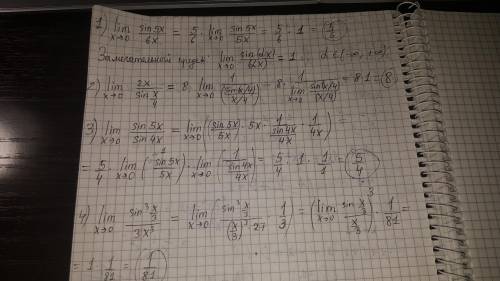 1) lim x→0 sin5x/6x = 5/6 · lim x→0 sin5x/5x = 5/6 · 1 = 5/6
Замечательный предел lim x→0 sin(αx)/(αx) = 1 α∈(-∞, +∞)
2) lim x→0 2x/sin x/4 = 8 · lim x→0 1/((sin(x/4))/(x/4)) = 8 · 1/(lim x→0 sin(x/4)/(x/4)) = 8·1 = 8
3) lim x→0 sin5x/sin4x = lim x→0 ((sin5x/5x) · 5x · 1/(sin4x/4x) · 1/4x) =
= 5/4 · lim x→0 (sin5x/5x) · lim x→0 (1/(sin4x/4x)) = 5/4 · 1 · 1/1 = 5/4
4) lim x→0 sin³ x/3 / 3x³ = lim x→0 (sin³ x/3 / ((x/3)³ · 27) · 1/3) = (lim x→0 sin x/3 / x/3)³ · 1/81 =
= 1 · 1/81 = 1/81